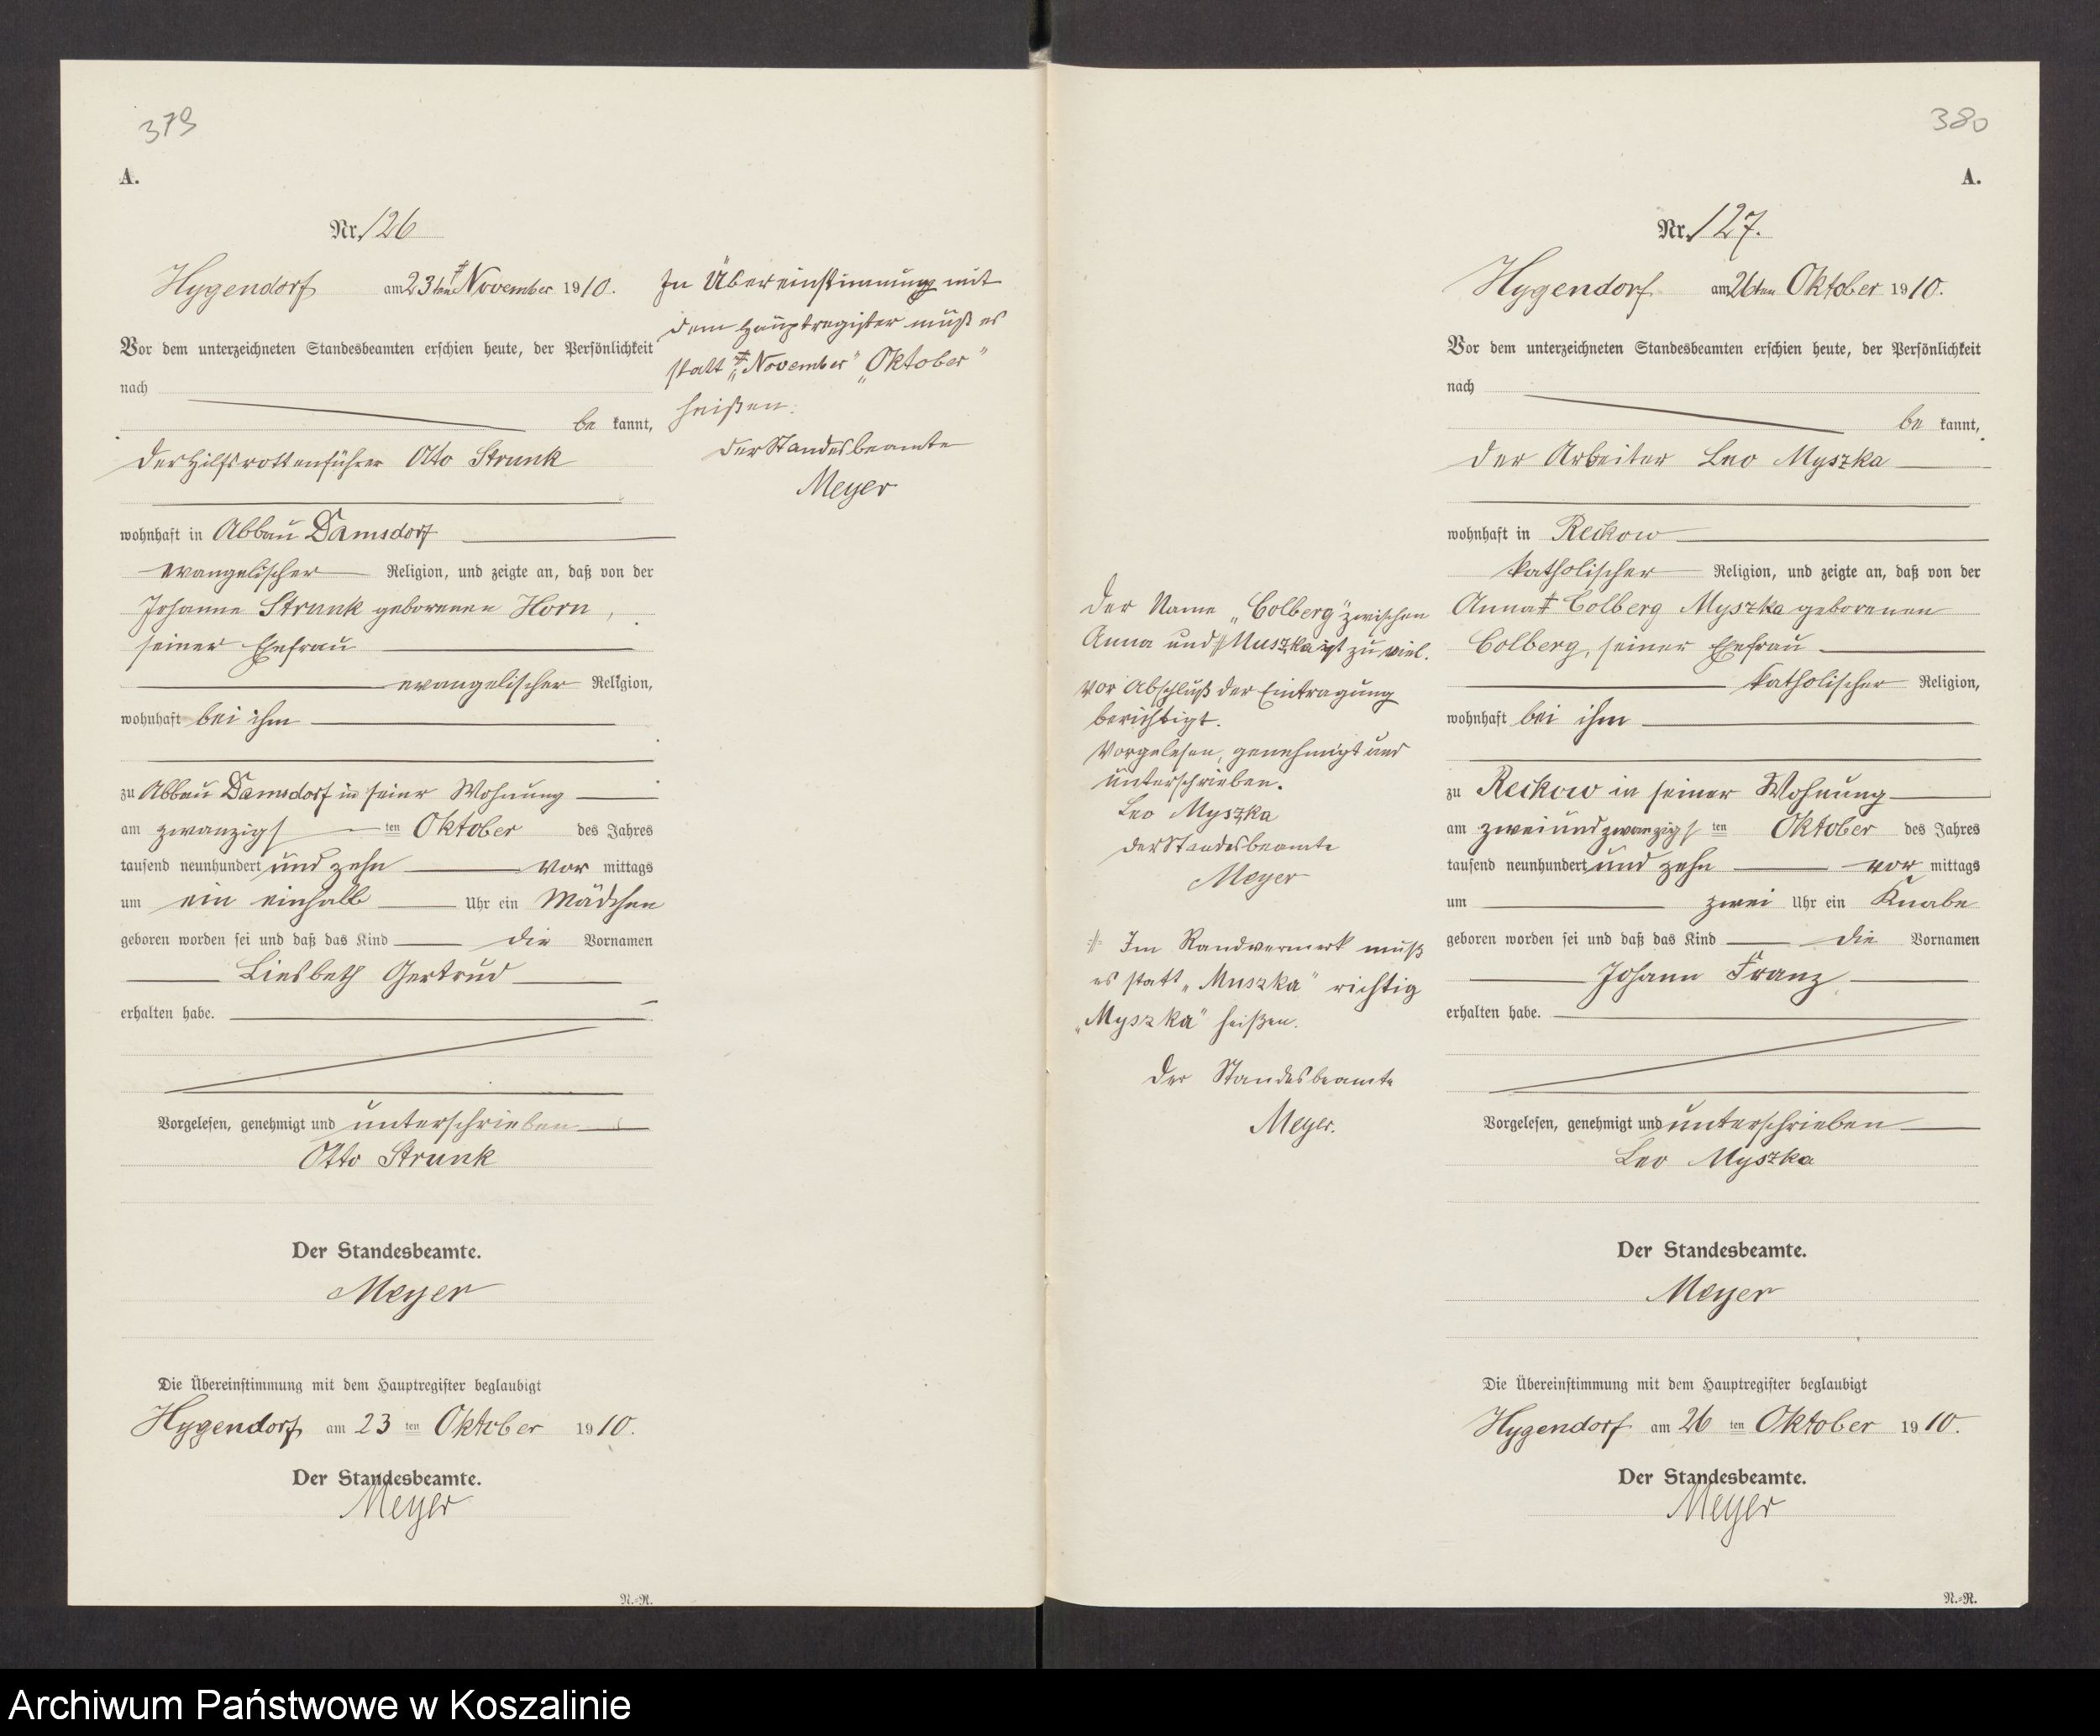 379
A.
Nr. 126
Hygendorf am 23ten ‡ November 1910.
Vor dem unterzeichneten Standesbeamten erschien heute, der Persönlichkeit
nach
be kannt,
der Hilfsrottenführer Otto Strunk
wohnhaft in Abbau Damsdorf
evangelischer Religion, und zeigte an, daß von der
Johanne Strunk geborenen Horn,
seiner Ehefrau
evangelischer Religion,
wohnhaft bei ihm
zu Abbau Damsdorf in seiner Wohnung
am zwanzigs ten Oktober des Jahres
tausend neunhundert und zehn vor mittags
um ein einhalb Uhr ein Mädchen
geboren worden sei und daß das Kind die Vornamen
Liesbeth Gertrud
erhalten habe.
Vorgelesen, genehmigt und unterschrieben
Otto Strunk
Der Standesbeamte.
Meyer
Die Übereinstimmung mit dem Hauptregister beglaubigt
Hygendorf am 23 ten Oktober 1910.
Der Standesbeamte.
Meyer
N.=R.
In Übereinstimmung mit
dem Hauptregister muß es
statt ‡ „November" „Oktober"
heißen.
Der Standesbeamte
Meyer
380
A.
Nr. 127.
Hygendorf am 26ten Oktober 1910.
Vor dem unterzeichneten Standesbeamten erschien heute, der Persönlichkeit
nach
be kannt,
der Arbeiter Leo Myszka
wohnhaft in Reckow
katholischer Religion, und zeigte an, daß von der
Anna ‡ Colberg Myszka geborenen
Colberg, seiner Ehefrau
katholischer Religion,
wohnhaft bei ihm
zu Reckow in seiner Wohnung
am zweiundzwanzigs ten Oktober des Jahres
tausend neunhundert und zehn vor mittags
um zwei Uhr ein Knabe
geboren worden sei und daß das Kind die Vornamen
Johann Franz
erhalten habe.
Vorgelesen, genehmigt und unterschrieben
Leo Myszka
Der Standesbeamte.
Meyer
Die Übereinstimmung mit dem Hauptregister beglaubigt
Hygendorf am 26 ten Oktober 1910.
Der Standesbeamte.
Meyer
N.=R.
Der Name „Colberg" zwischen
Anna und ╫ Muszka ist zu viel.
Vor Abschluß der Eintragung
berichtigt.
Vorgelesen, genehmigt und
unterschrieben.
Leo Myszka
Der Standesbeamte
Meyer
╫ Im Randvermerk muß
es statt „Muszka" richtig
„Myszka" heißen.
Der Standesbeamte
Meyer.
Archiwum Państwowe w Koszalinie